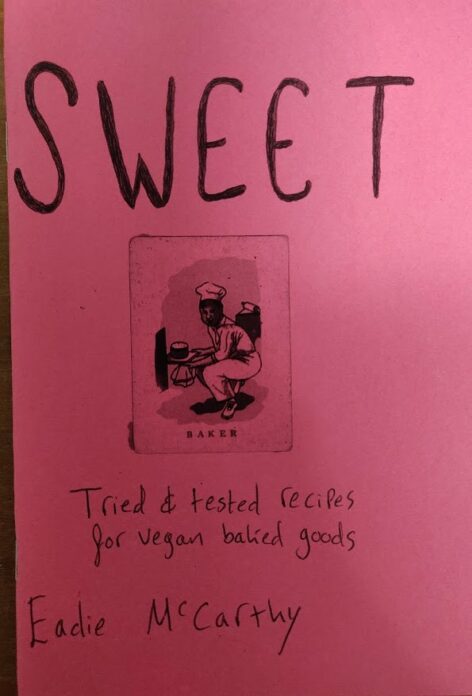 SWEET
BAKER
Tried & tested recipes
for vegan baked goods
Eadie McCarthy